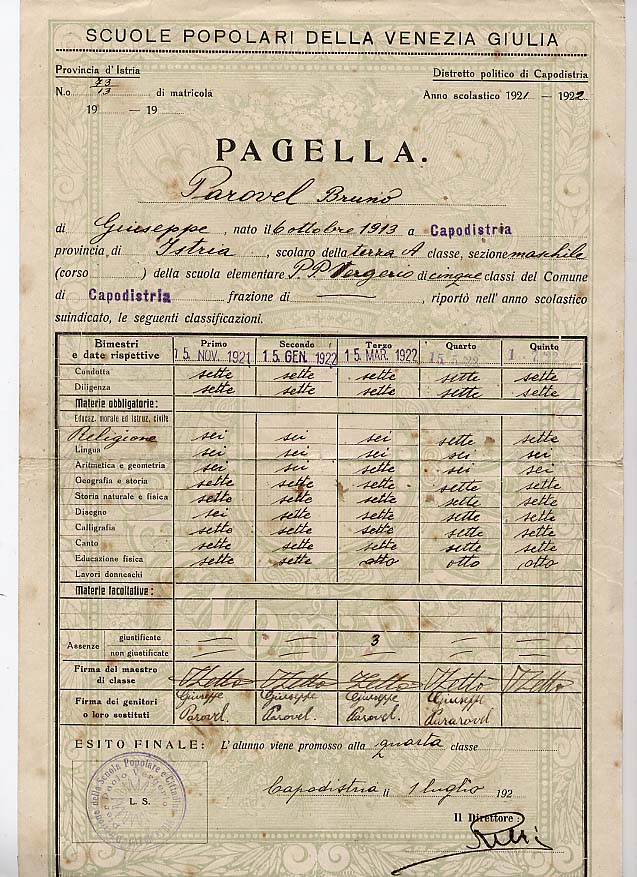 SCUOLE POPOLARI DELLA VENEZIA GIULIA
Provincia d' Istria
Distretto politico di Capodistria
N.o 73/13 di matricola
Anno scolastico 1921 — 1922
19 — 19
PAGELLA.
Parovel Bruno
di Giuseppe, nato il 6 ottobre 1913 a Capodistria
provincia di Istria, scolaro della terza A classe, sezione maschile
(corso ) della scuola elementare P. P. Vergerio di cinque classi del Comune
di Capodistria frazione di —, riportò nell' anno scolastico
suindicato, le seguenti classificazioni.
Bimestri e date rispettive Primo Secondo Terzo Quarto Quinto
15. NOV. 1921 15. GEN. 1922 15. MAR. 1922
Condotta sette sette sette sette sette
Diligenza sette sette sette sette sette
Materie obbligatorie:
Educaz. morale ed istruz. civile
Religione sei sei sei sette sette
Lingua sei sei sei sei sei
Aritmetica e geometria sei sei sette sei sei
Geografia e storia sette sette sette sette sette
Storia naturale e fisica sette sette sette sette sette
Disegno sei sette sette sette sette
Calligrafia sette sette sette sette sette
Canto sette sette sette sette sette
Educazione fisica sette sette otto otto otto
Lavori donneschi
Materie facoltative:
Assenze giustificate — — 3 — —
non giustificate — — — — —
Firma del maestro di classe
Firma dei genitori o loro sostituti Giuseppe Parovel. Giuseppe Parovel. Giuseppe Parovel. Giuseppe
ESITO FINALE: L'alunno viene promosso alla quarta classe
Capodistria li 1 luglio 192
L. S.
Il Direttore: